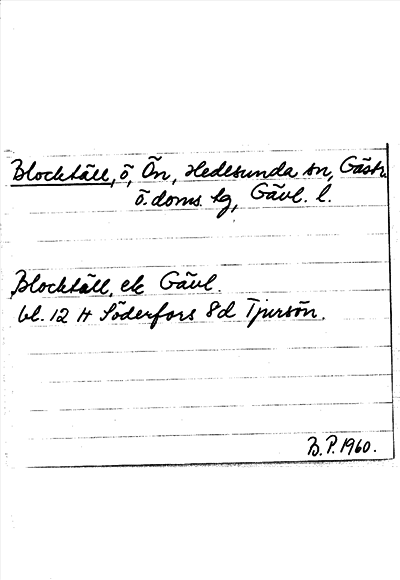 Blocktäll, ö, Ön, Hedesunda sn, Gästr.
ö. doms. lg, Gävl. l.
Blocktäll, ek Gävl.
bl. 12 H Söderfors 8d Tjursön.
B. P. 1960.